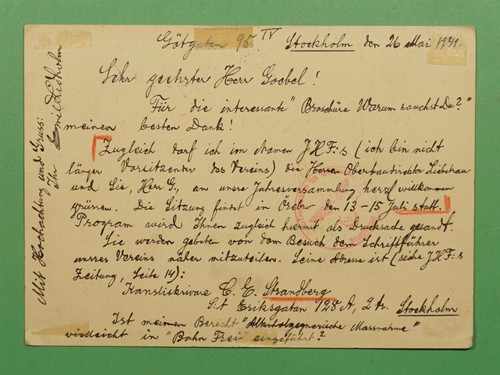 Götgatan 95 IV Stockholm den 26 Mai 1931.
Sehr geehrter Herr Goebel!
Für die interessante "Broschüre Warum rauchst Du?"
meinen besten Dank!
Zugleich darf ich im Namen J.H.F:s (ich bin nicht
länger Vorsitzender des Vereins) die Herren Oberbaudirektor
und Sie, Herr G., an unsre Jahresversammlung herz. willkommen
grüssen. Die Sitzung findet in Örebro den 13-15 Juli statt.
Program wird Ihnen zugleich hiermit als Drucksache gesandt.
Sie werden gebeten von dem Besuch dem Schriftführer
unsres Vereins näher mitzuteilen. Seine Adresse ist (siehe J.H.F:s
Zeitung, Seite 14):
Kansliskrivare C. E. Strandberg
S:t Eriksgatan 128 A, 2 tr. Stockholm
Ist meinen Bericht "Massnahme"
vielleicht in "Bahn Frei" eingeführt?
Mit Hochachtung und Gruss:
Ihr Emil